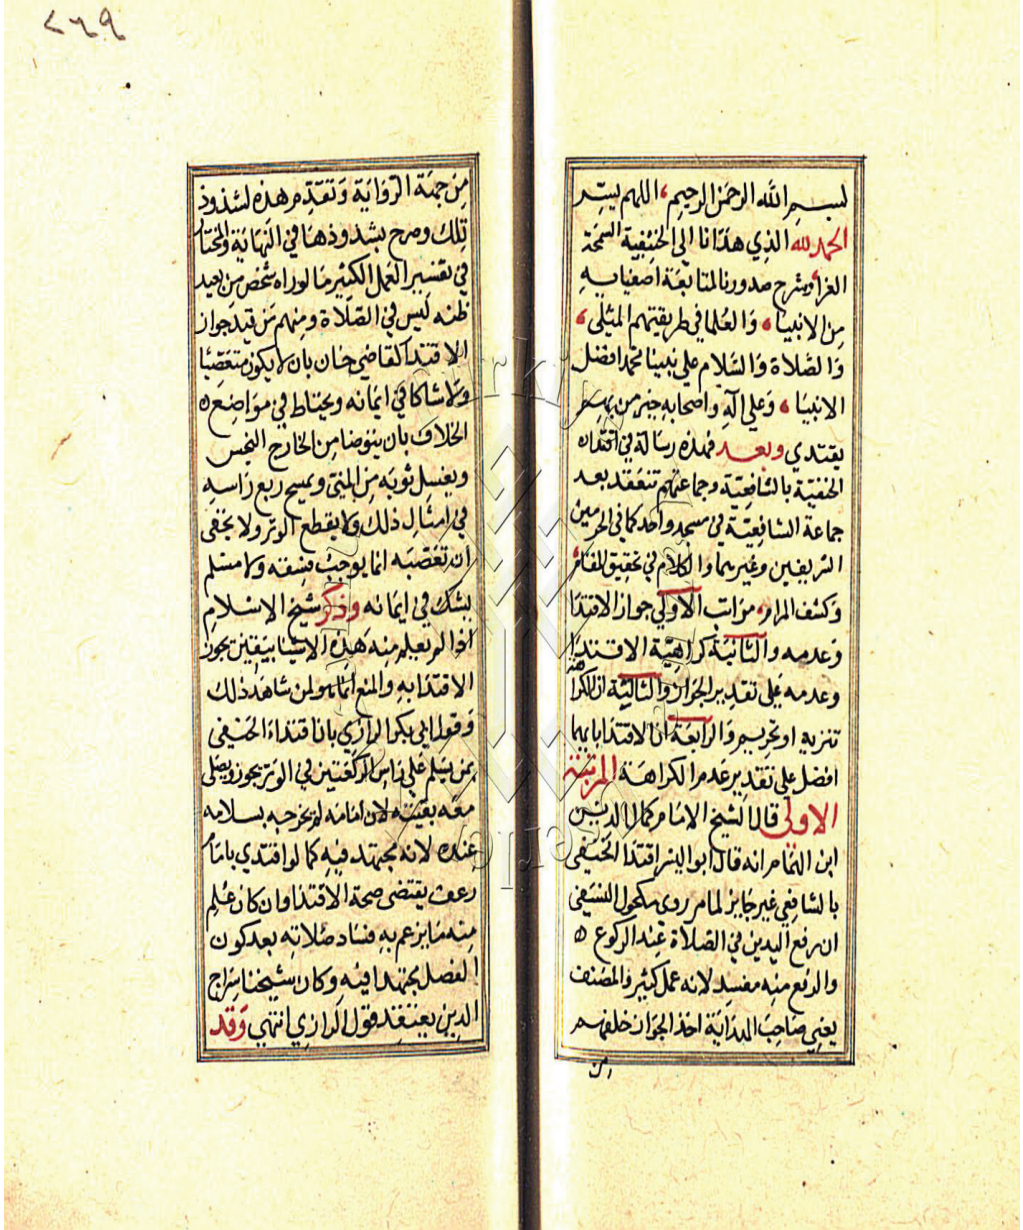 بسم الله الرحمن الرحيم، اللهم يسر
الحمد لله الذي هدانا الى الحنيفية السمحة
الغرا وشرح صدورنا لمتابعة اصفيايه
من الانبيا، والعلما في طريقتهم المثلى،
والصلاة والسلام على نبينا محمد افضل
الانبيا، وعلى آله واصحابه خير من بهم
يقتدي وبعد فهذه رسالة في اقتداء
الحنفية بالشافعية وجماعتهم تنعقد بعد
جماعة الشافعية في مسجد واحد كما في الحرمين
الشريفين وغيرهما والكلام في تحقيق المقام
وكشف المرام، مراتب الاولى جواز الاقتدا
وعدمه والثانية كراهية الاقتدا
وعدمه على تقدير الجواز والثالثة ان الكراهة
تنزيه او تحريم والرابعة ان الاقتدا بايهما
افضل على تقدير عدم الكراهة المرتبة
الاولى قال الشيخ الامام كمال الدين
ابن الهمام انه قال ابو اليسر اقتدا الحنفي
بالشافعي غير جايز لما روى مكحول النسفي
ان رفع اليدين في الصلاة عند الركوع ه
والرفع منه مفسد لانه عمل كثير والمصنف
يعني صاحب الهداية اخذ الجواز خلفهم
من
٢٦٩
من جهة الرواية وتقدم هذه لشذوذ
تلك وصرح بشذوذها في النهاية والمختار
في تفسير العمل الكثير ما لو راه شخص من بعيد
ظنه ليس في الصلاة ومنهم من قيد جواز
الاقتدا كالقاضي خان بان لا يكون متعصبا
ولا شاكا في ايمانه ويحتاط في مواضع ه
الخلاف بان يتوضا من الخارج النجس
ويغسل ثوبه من المني ويمسح ربع راسه
في امثال ذلك ولا يقطع الوتر ولا يخفى
ان تعصبه انما يوجب فسقه ولا مسلم
يشك في ايمانه وذكر شيخ الاسلام
اذا لم يعلم منه هذه الاشيا بيقين يجوز
الاقتدا به والمنع انما هو لمن شاهد ذلك
وقول ابي بكر الرازي بان اقتداء الحنفي
بمن يسلم على راس الركعتين في الوتر يجوز ويصلى
معه بقيته لان امامه لم يخرجه بسلامه
عنده لانه مجتهد فيه كما لو اقتدي بامام
رعف يقتضى صحة الاقتدا وان كان علم
منه ما يزعم به فساد صلاته بعد كون
الفصل مجتهدا فيه وكان شيخنا سراج
الدين يعتقد قول الرازي انتهي وقد